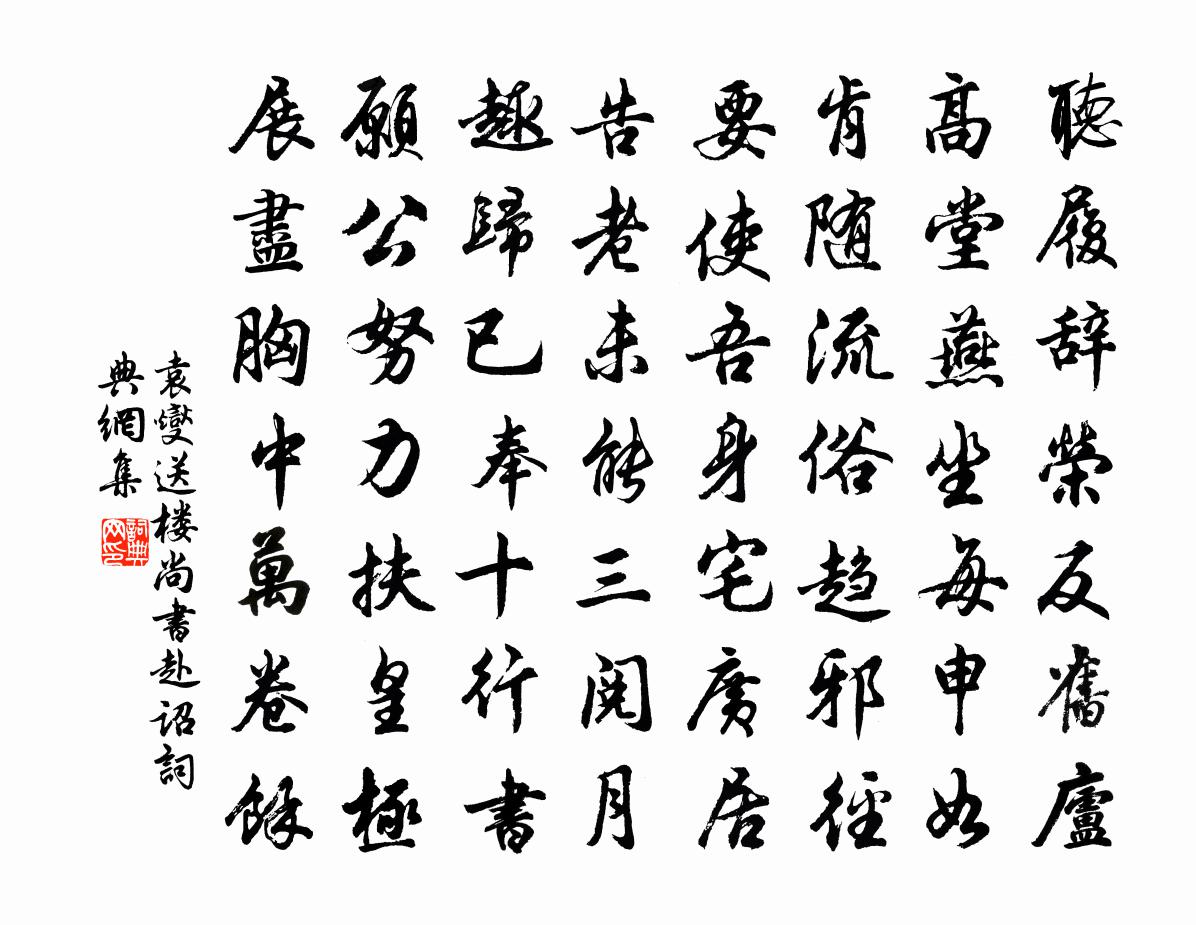 聽履辞榮反舊廬
高堂燕坐每申如
肯随流俗趋邪徑
要使吾身宅廣居
告老未能三閱月
趣歸已奉十行書
願公努力扶皇極
展盡胸中萬卷餘
袁燮送楼尚書赴詔詞
典網集
詞典网印